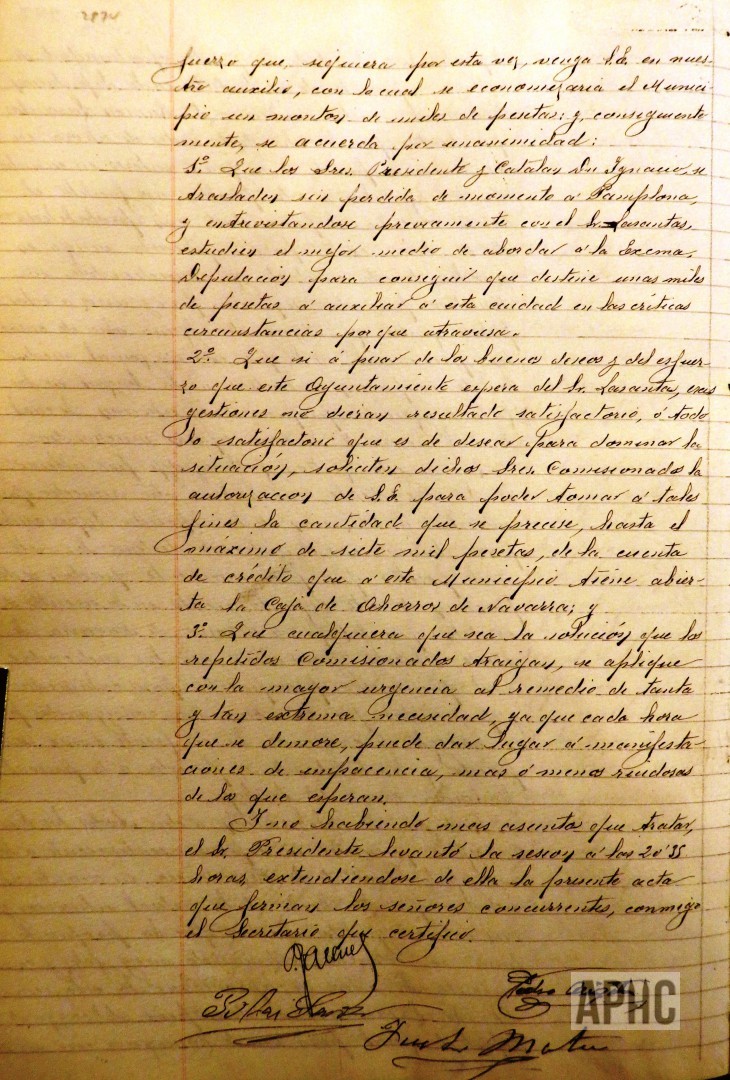 fuerzo que, siquiera por esta vez, venga S.E. en nues-
tro auxilio, con lo cual se economizaria el Munici-
pio un monton de miles de pesetas; y, consiguiente
mente, se acuerda por unanimidad:
1º Que los Sres. Presidente y Catalan Dn Ignacio, se
trasladen sin perdida de momento á Pamplona,
y entrevistandose previamente con el Sr. Lasantas,
estudien el mejor medio de abordar á la Excma.
Deputación para conseguir que destine unas miles
de pesetas á auxiliar á esta ciudad en las críticas
circunstancias por que atraviesa.
2º Que si á pesar de los buenos deseos y del esfuer-
zo que este Ayuntamiento espera del Sr. Lasanta, esas
gestiones no dieran resultado satisfactorio, ó todo
lo satisfactorio que es de desear para dominar la
situación, soliciten dichos Sres. Comisionados la
autorización de S.E. para poder tomar á tales
fines la cantidad que se precise, hasta el
máximo de siete mil pesetas, de la cuenta
de crédito que á este Municipio tiene abier-
ta la Caja de Ahorros de Navarra; y
3º Que cualquiera que sea la solución que los
repetidos Comisionados traigan, se aplique
con la mayor urgencia al remedio de tanta
y tan extrema necesidad, ya que cada hora
que se demore, puede dar lugar á manifesta-
ciones de impacencia, mas ó menos ruidosas
de los que esperan.
Y no habiendo mas asunto que tratar,
el Sr. Presidente levantó la sesion á las 20'35
horas, extendiendose de ella la presente acta
que firman los señores concurrentes, conmigo
el Secretario que certifico.
Pedro
APHC